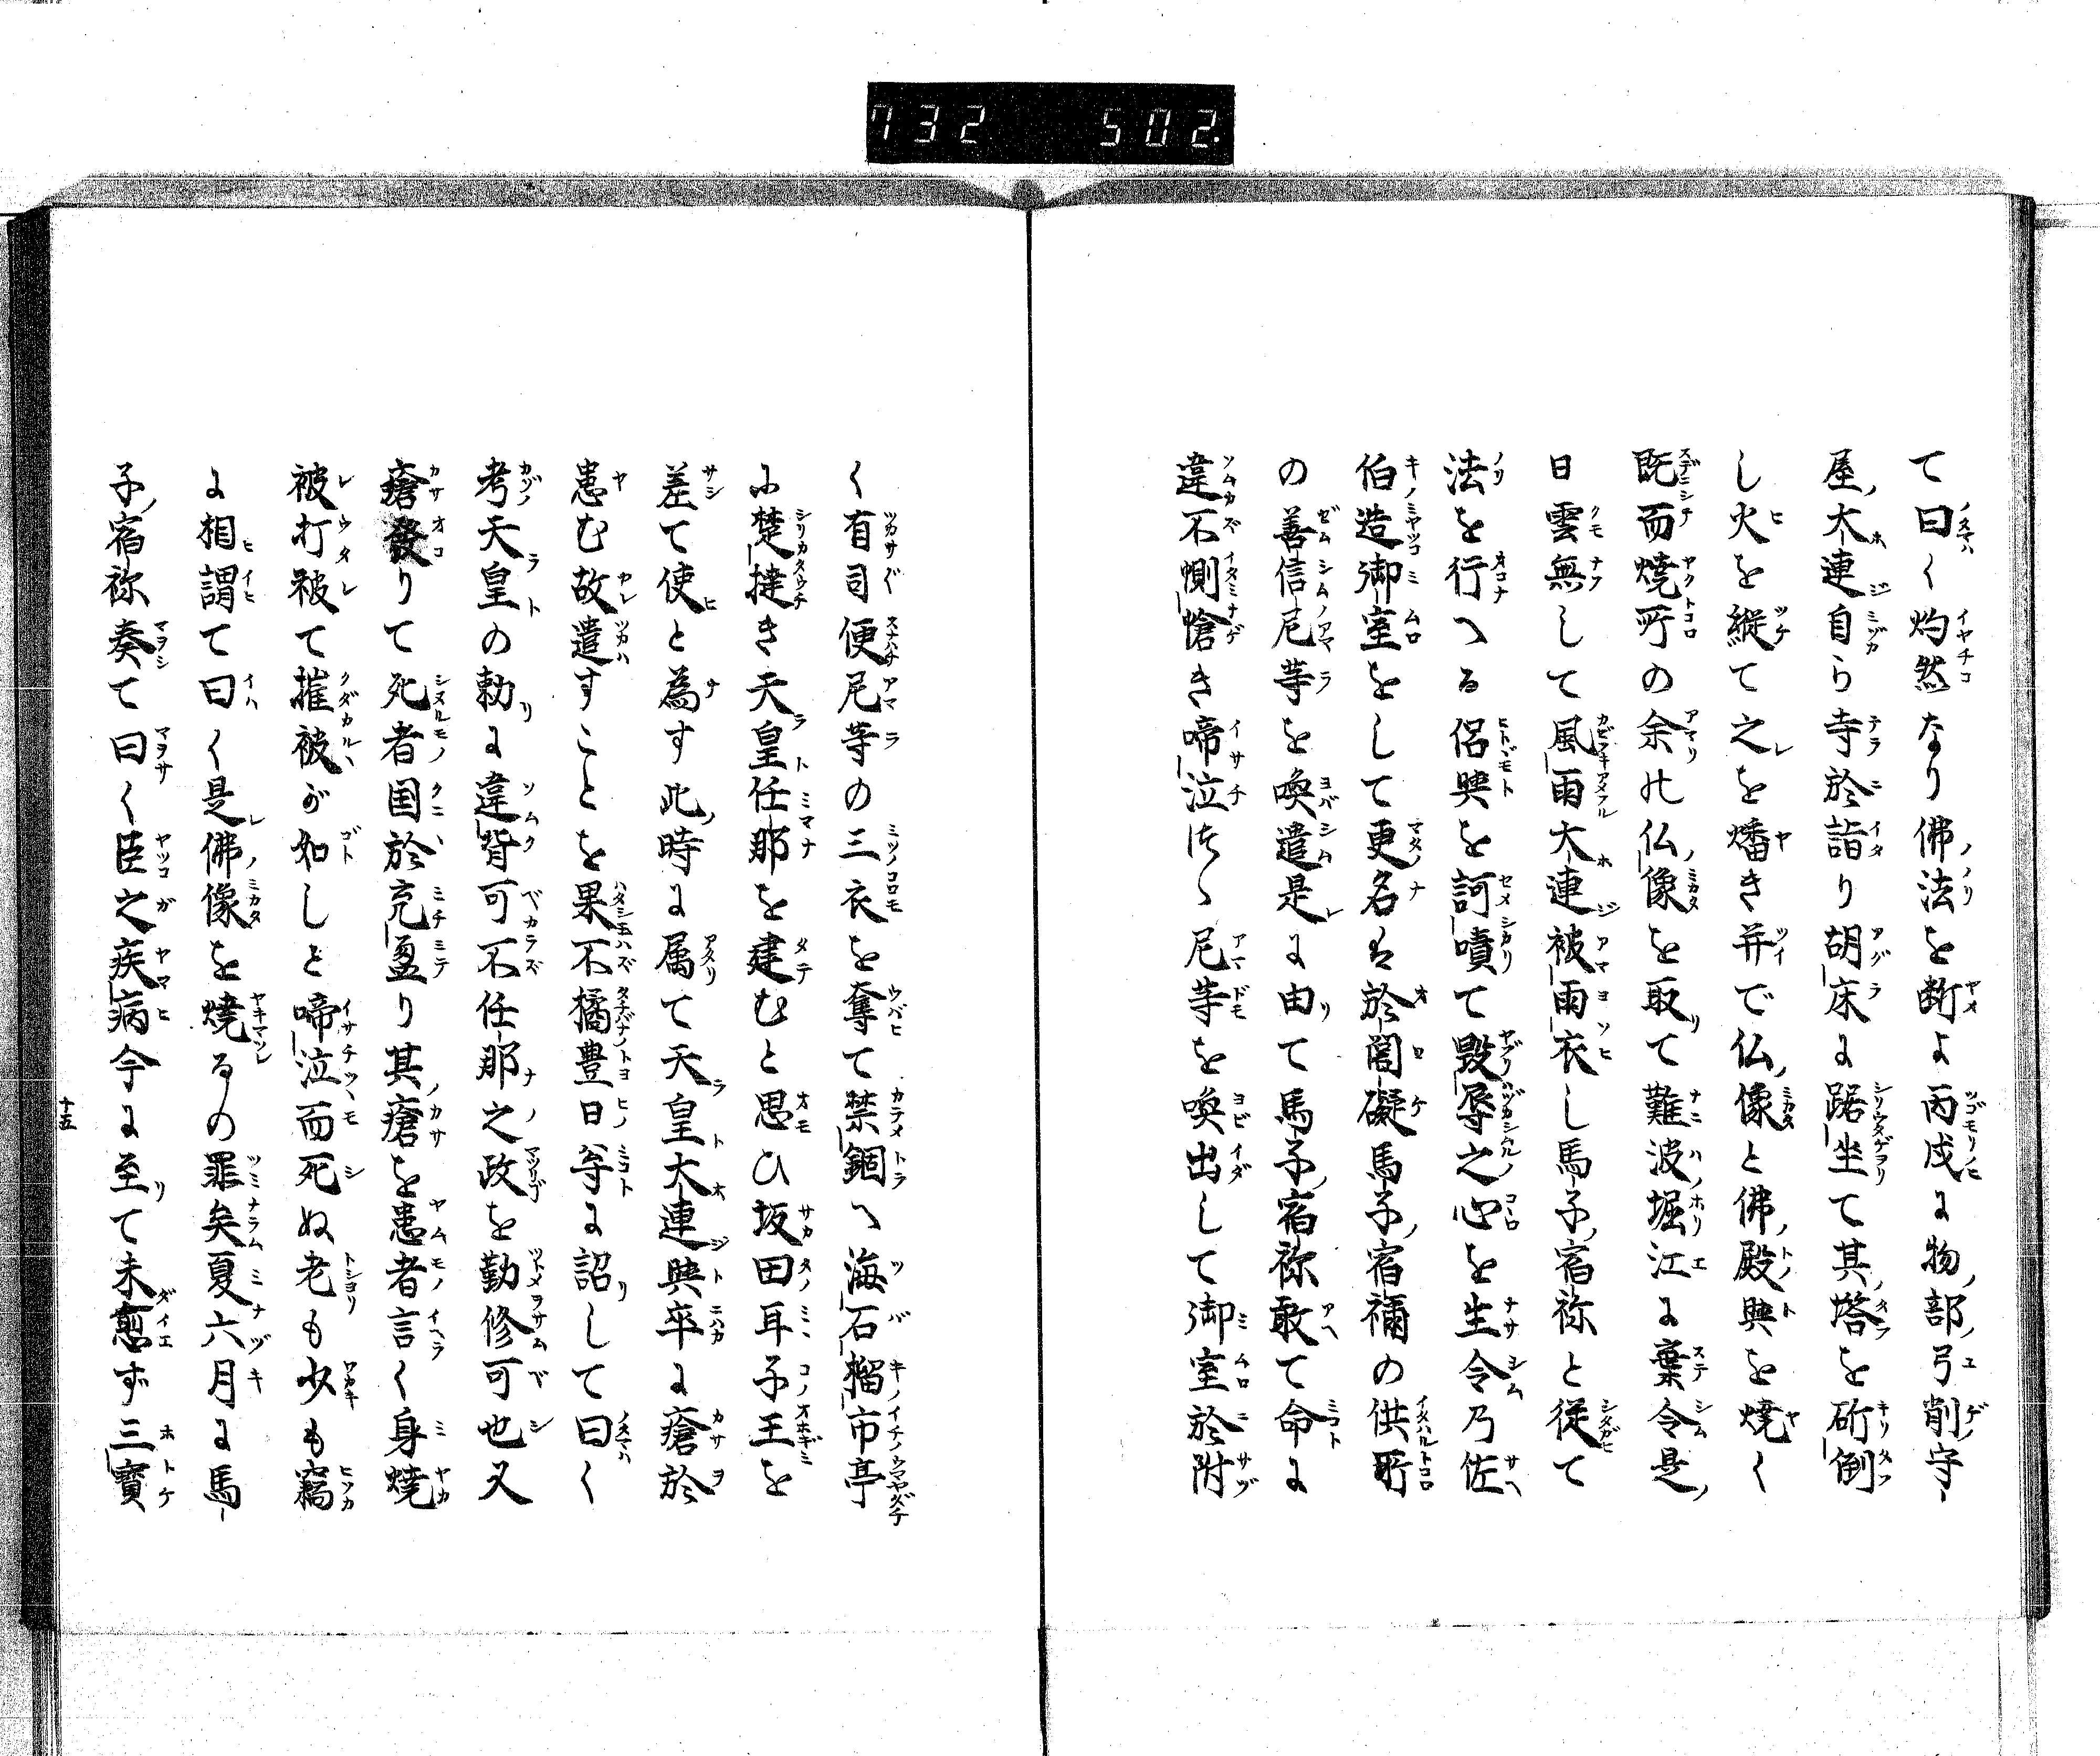 732 502
て曰く灼然なり佛法を断よ丙戌に物部弓削守
屋大連自ら寺於詣り胡床に踞坐て其塔を斫倒
し火を縦て之を燔き并で仏像と佛殿與を焼く
既而焼所の余れ仏像を取て難波堀江に棄令是
日雲無して風雨大連被雨衣し馬子宿祢と従て
法を行へる侶與を訶嘖て毀辱之心を生令乃佐
伯造御室をして更名は於閭礙馬子宿禰の供所
の善信尼等を喚遣是に由て馬子宿祢敢て命に
違不惻愴き啼泣つゝ尼等を喚出して御室於附
く有司便尼等の三衣を奪て禁錮へ海石榴市亭
に楚撻き天皇任那を建むと思ひ坂田耳子王を
差て使と為す此時に属て天皇大連與卒に瘡於
患む故遣すことを果不橘豊日等に詔して曰く
考天皇の勅に違背可不任那之政を勤修可也又
瘡發りて死者国於充盈り其瘡を患者言く身焼
被打被て摧被が如しと啼泣而死ぬ老も少も竊
に相謂て曰く是佛像を焼るの罪矣夏六月に馬
子宿祢奏て曰く臣之疾病今に至て未愈ず三寶
十五